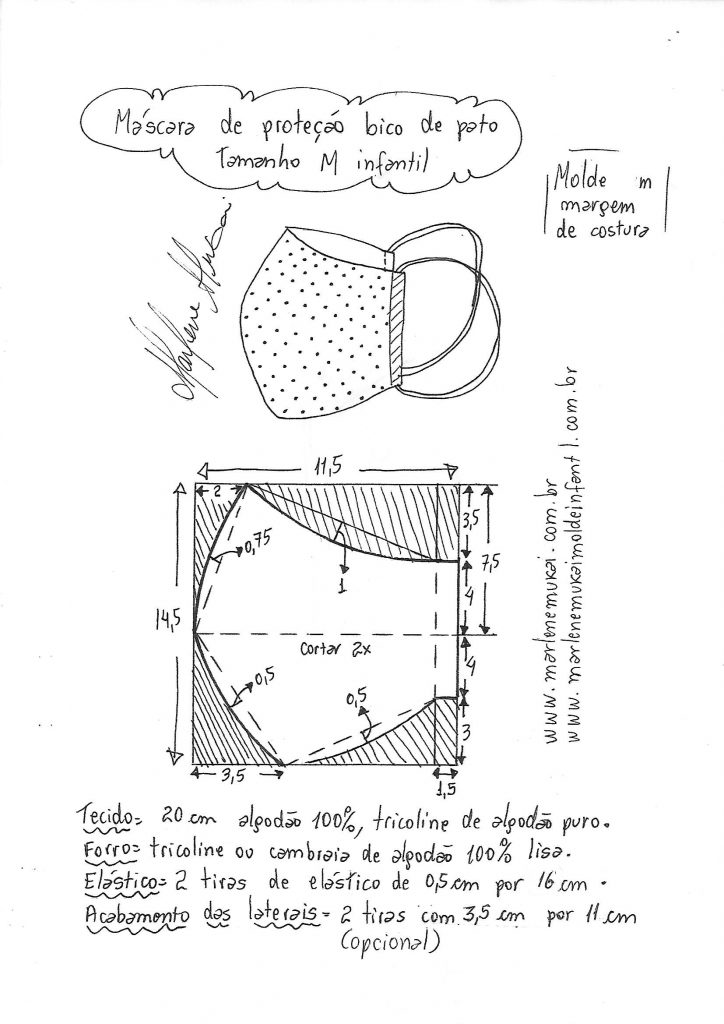 Máscara de proteção bico de pato
Tamanho M infantil
Molde m
margem
de costura
11,5
2
3,5
0,75
7,5
1
4
14,5
cortar 2x
4
0,5
0,5
3
3,5
1,5
www.marlenemukai.com.br
www.marlenemukaimoldeinfantil.com.br
Tecido= 20 cm algodão 100%, tricoline de algodão puro.
Forro= tricoline ou cambraia de algodão 100% lisa.
Elástico= 2 tiras de elástico de 0,5 cm por 16 cm.
Acabamento das laterais= 2 tiras com 3,5 cm por 11 cm
(opcional)